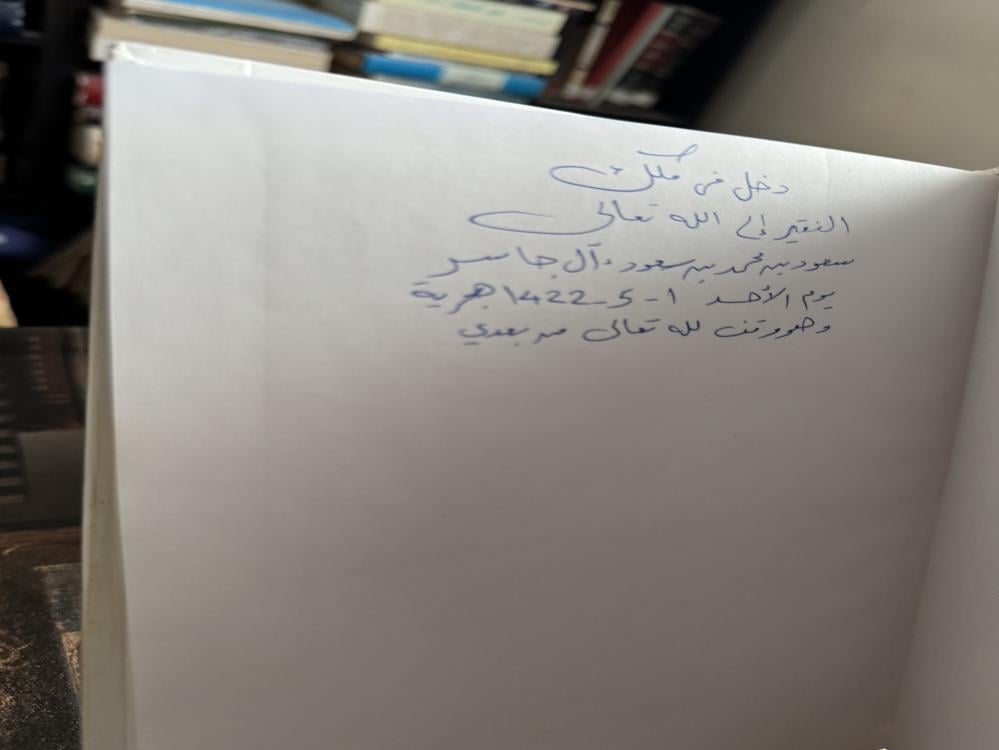 دخل في ملك
الفقير إلى الله تعالى
سعود بن محمد بن سعود آل جاسر
يوم الأحد 1-5-1422 هجرية
وهو وقف لله تعالى من بعدي